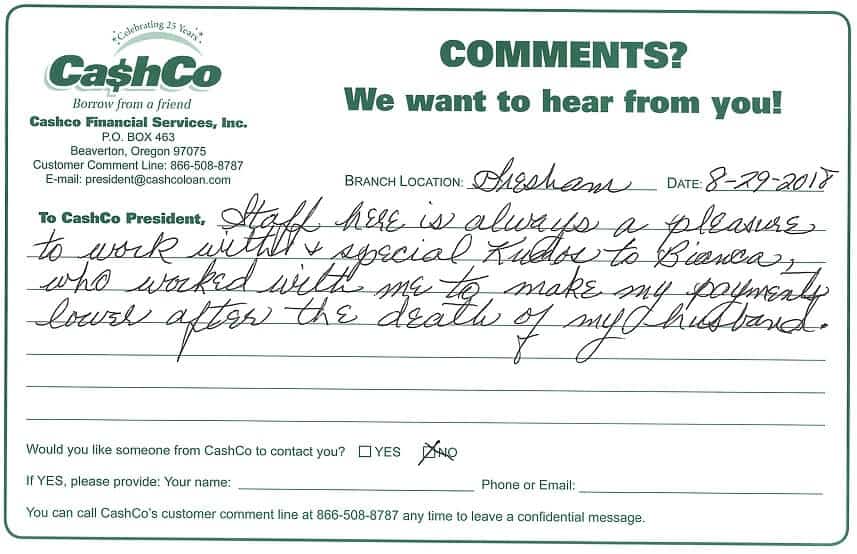 Celebrating 25 Years
Ca$hCo
Borrow from a friend
Cashco Financial Services, Inc.
P.O. BOX 463
Beaverton, Oregon 97075
Customer Comment Line: 866-508-8787
E-mail: president@cashcoloan.com
COMMENTS?
We want to hear from you!
BRANCH LOCATION: Gresham DATE: 8-29-2018
To CashCo President, Staff here is always a pleasure
to work with & special Kudos to Bianca,
who worked with me to make my payments
lower after the death of my husband.
Would you like someone from CashCo to contact you? ☐ YES ☒ NO
If YES, please provide: Your name: Phone or Email:
You can call CashCo's customer comment line at 866-508-8787 any time to leave a confidential message.